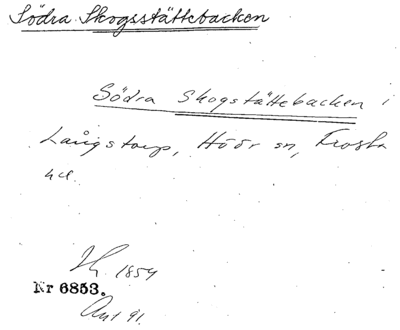 Södra Skogsstättebacken
Södra Skogstättebacken i
Långstorp, Höör sn, Frosta
hd.
1854
Nr 6853.
Ant 91.